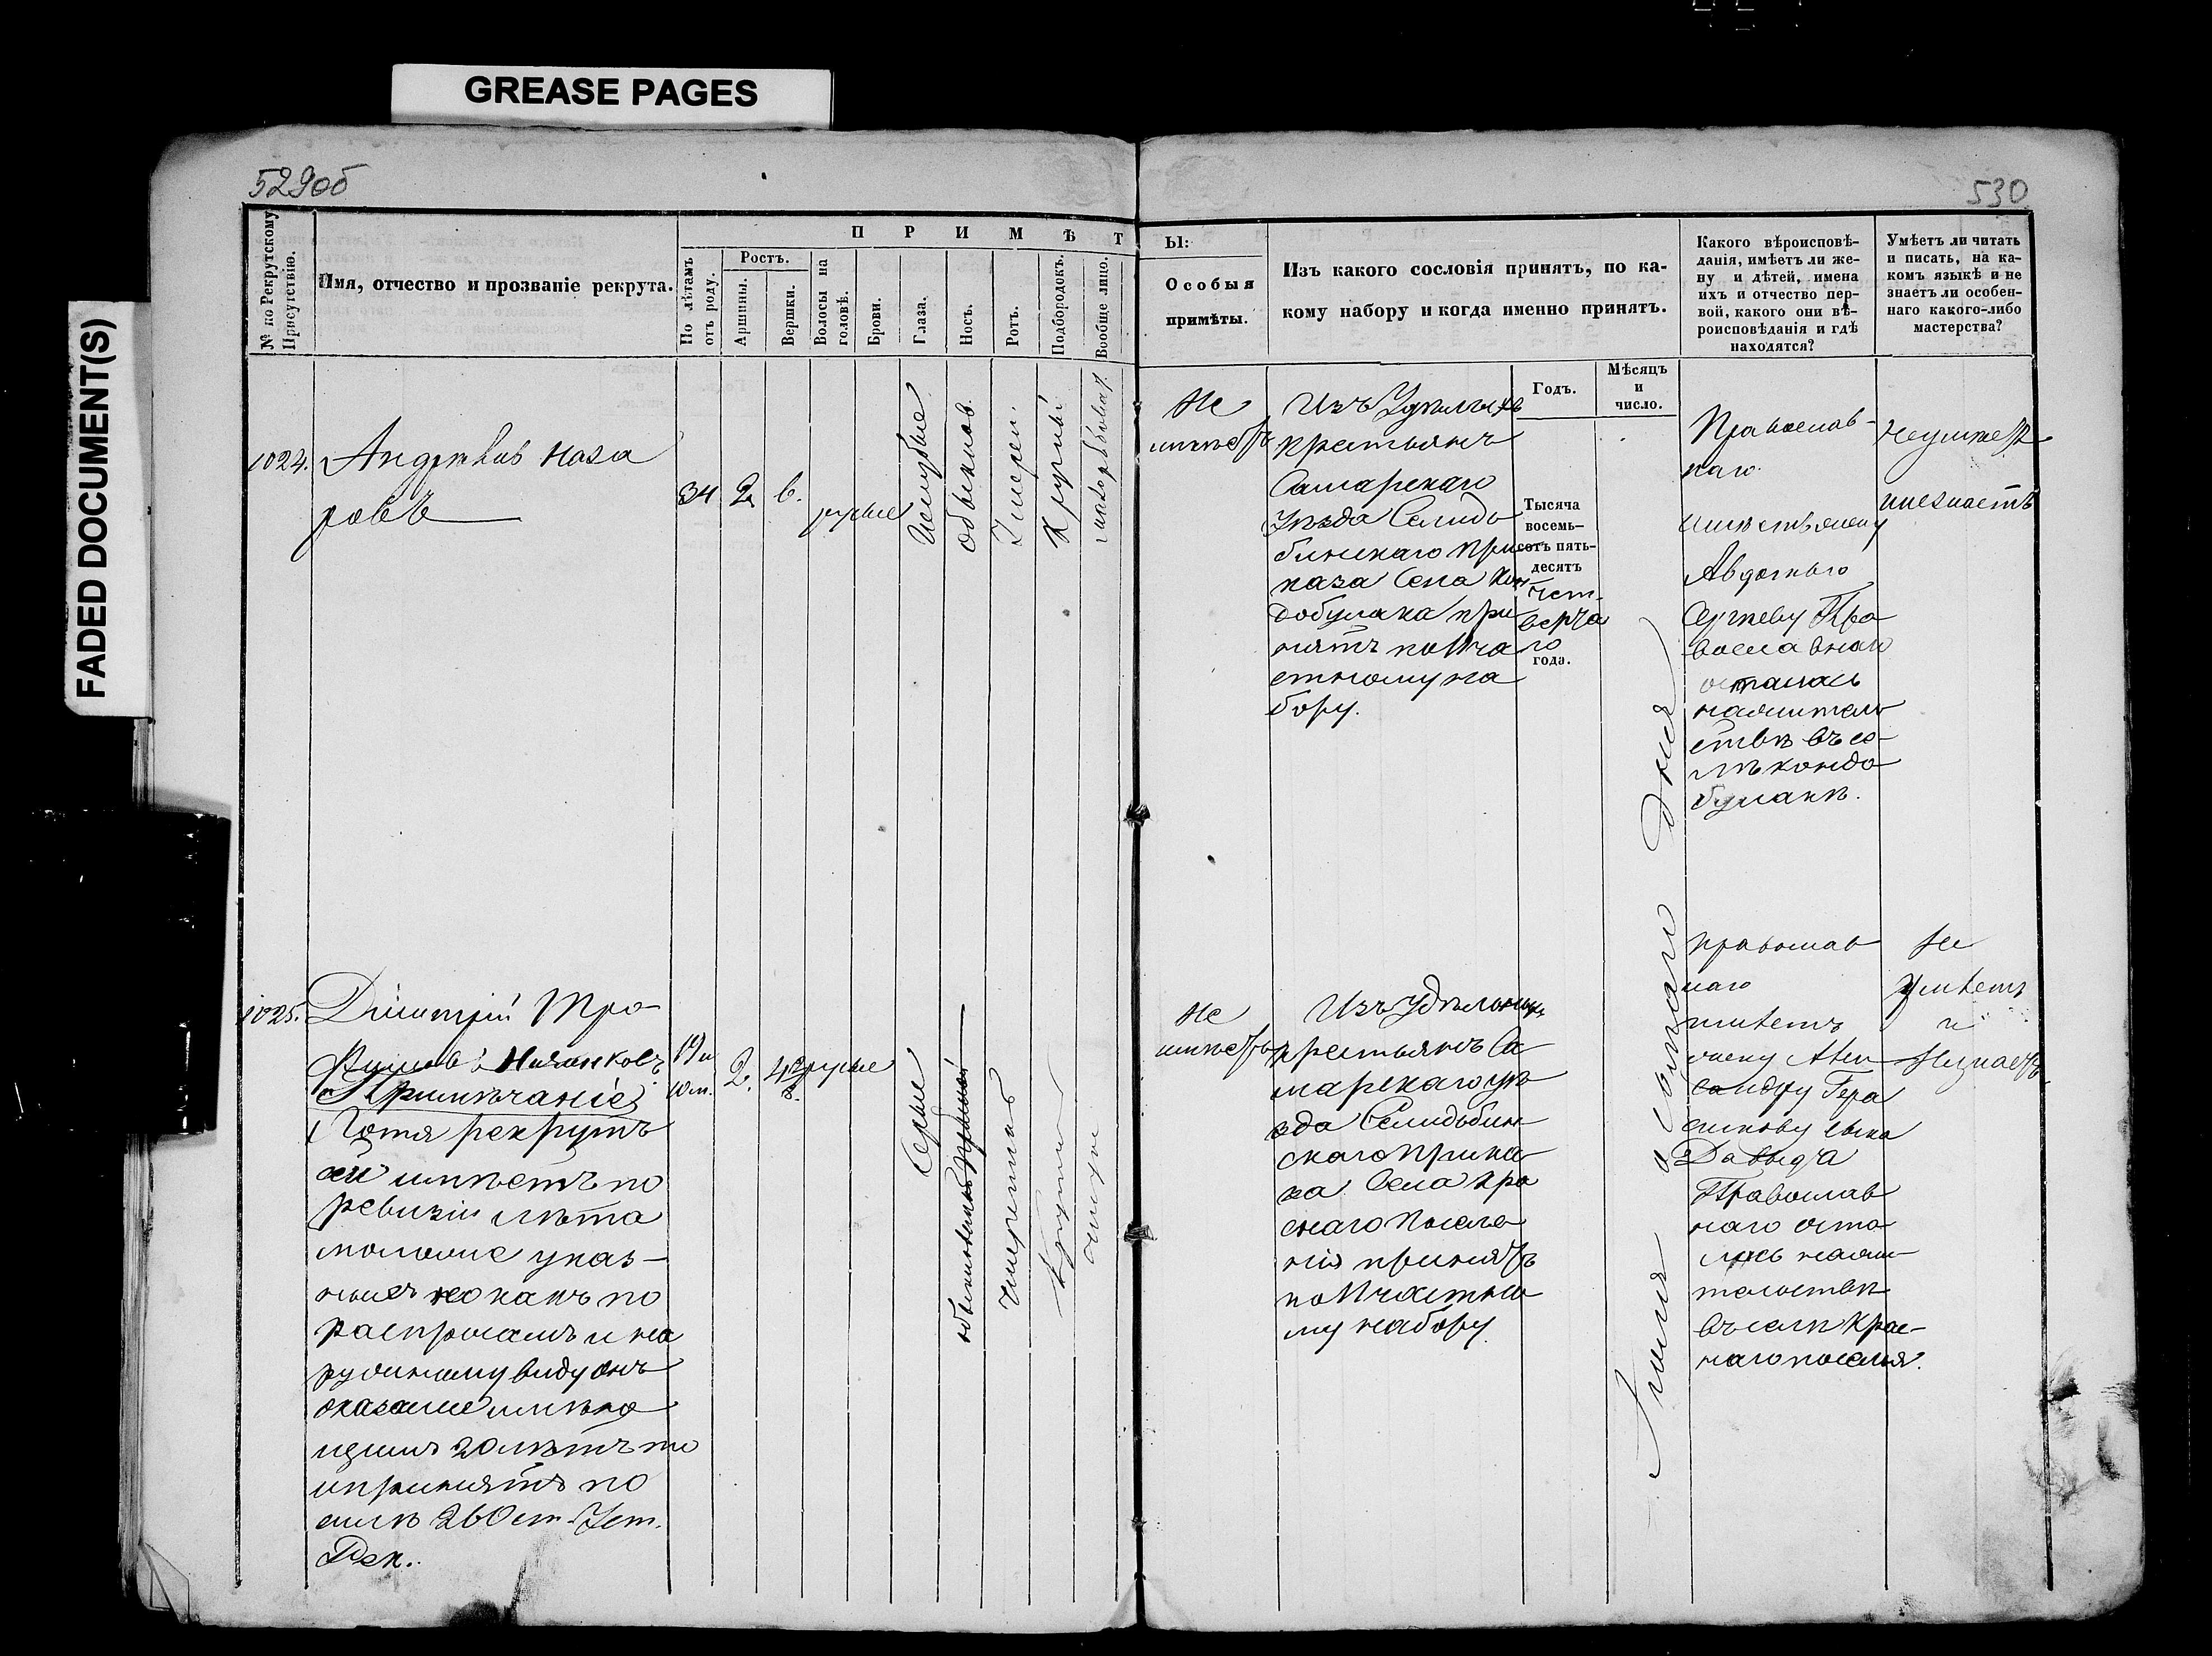 GREASE PAGES
FADED DOCUMENT(S)
529об
530
№ по Рекрутскому Присутствію.
Имя, отчество и прозваніе рекрута.
П Р И М Ѣ Т
Ы:
По лѣтамъ отъ роду.
Ростъ.
Аршины.
Вершки.
Волосы на головѣ.
Брови.
Глаза.
Носъ.
Ротъ.
Подбородокъ.
Вообще лицо.
Особыя
примѣты.
Изъ какого сословія принятъ, по ка-
кому набору и когда именно принятъ.
Годъ.
Мѣсяцъ
и
число.
Какого вѣроисповѣ-
данія, имѣетъ ли же-
ну и дѣтей, имена
ихъ и отчество пер-
вой, какого они вѣ-
роисповѣданія и гдѣ
находятся?
Умѣетъ ли читать
и писать, на ка-
комъ языкѣ и не
знаетъ ли особен-
наго какого-либо
мастерства?
1024.
Андрей Наза
ровъ
34
2
6.
русые
обыкнов.
Умерен.
Круглый
Не
имѣетъ
Изъ Удѣльныхъ
крестьянъ
Самарскаго
Уѣзда Семидь
бинскаго При
каза Села Кон
добулака при
нятъ по Ича
стному на
бору.
Тысяча
восемь-
сотъ пять-
десятъ
чет-
верта
го
года.
Православ-
наго
имѣетъ жену
Авдотью
Сергѣеву Пра
вославнаго
осталась
на жительс
ствѣ въ се-
лѣ Кондо
булакѣ.
неумѣетъ
инезнаетъ
1025.
Димитрій Тро-
фимовъ
Примѣчаніе
Хотя рекрутъ
сей имѣетъ по
ревизіи лѣта
моложе указ-
ныхъ но какъ по
распросамъ и на
ружному виду онъ
оказался имѣю
щимъ 20 лѣтъ то
и принятъ по
силѣ 260 ст. Уст.
Рек.
19 и
10 м.
2.
4
русые
Серые
обыкновенный
умеренный
круглый
чистое
Не
имѣетъ
Изъ Удѣльныхъ
крестьянъ Са
марскаго уѣ
зда Семидьбин
скаго Прика
за Села Кра
снаго Поселе
нія принятъ
по Ичастно
му набору.
дня
православ
наго
имѣетъ
жену Алек
сандру Гера
симову сына
Давыда
Православ
наго оста
лись на жи
тельствѣ
въ селѣ Крас-
наго поселья.
Не
умѣетъ
и
Незнаетъ